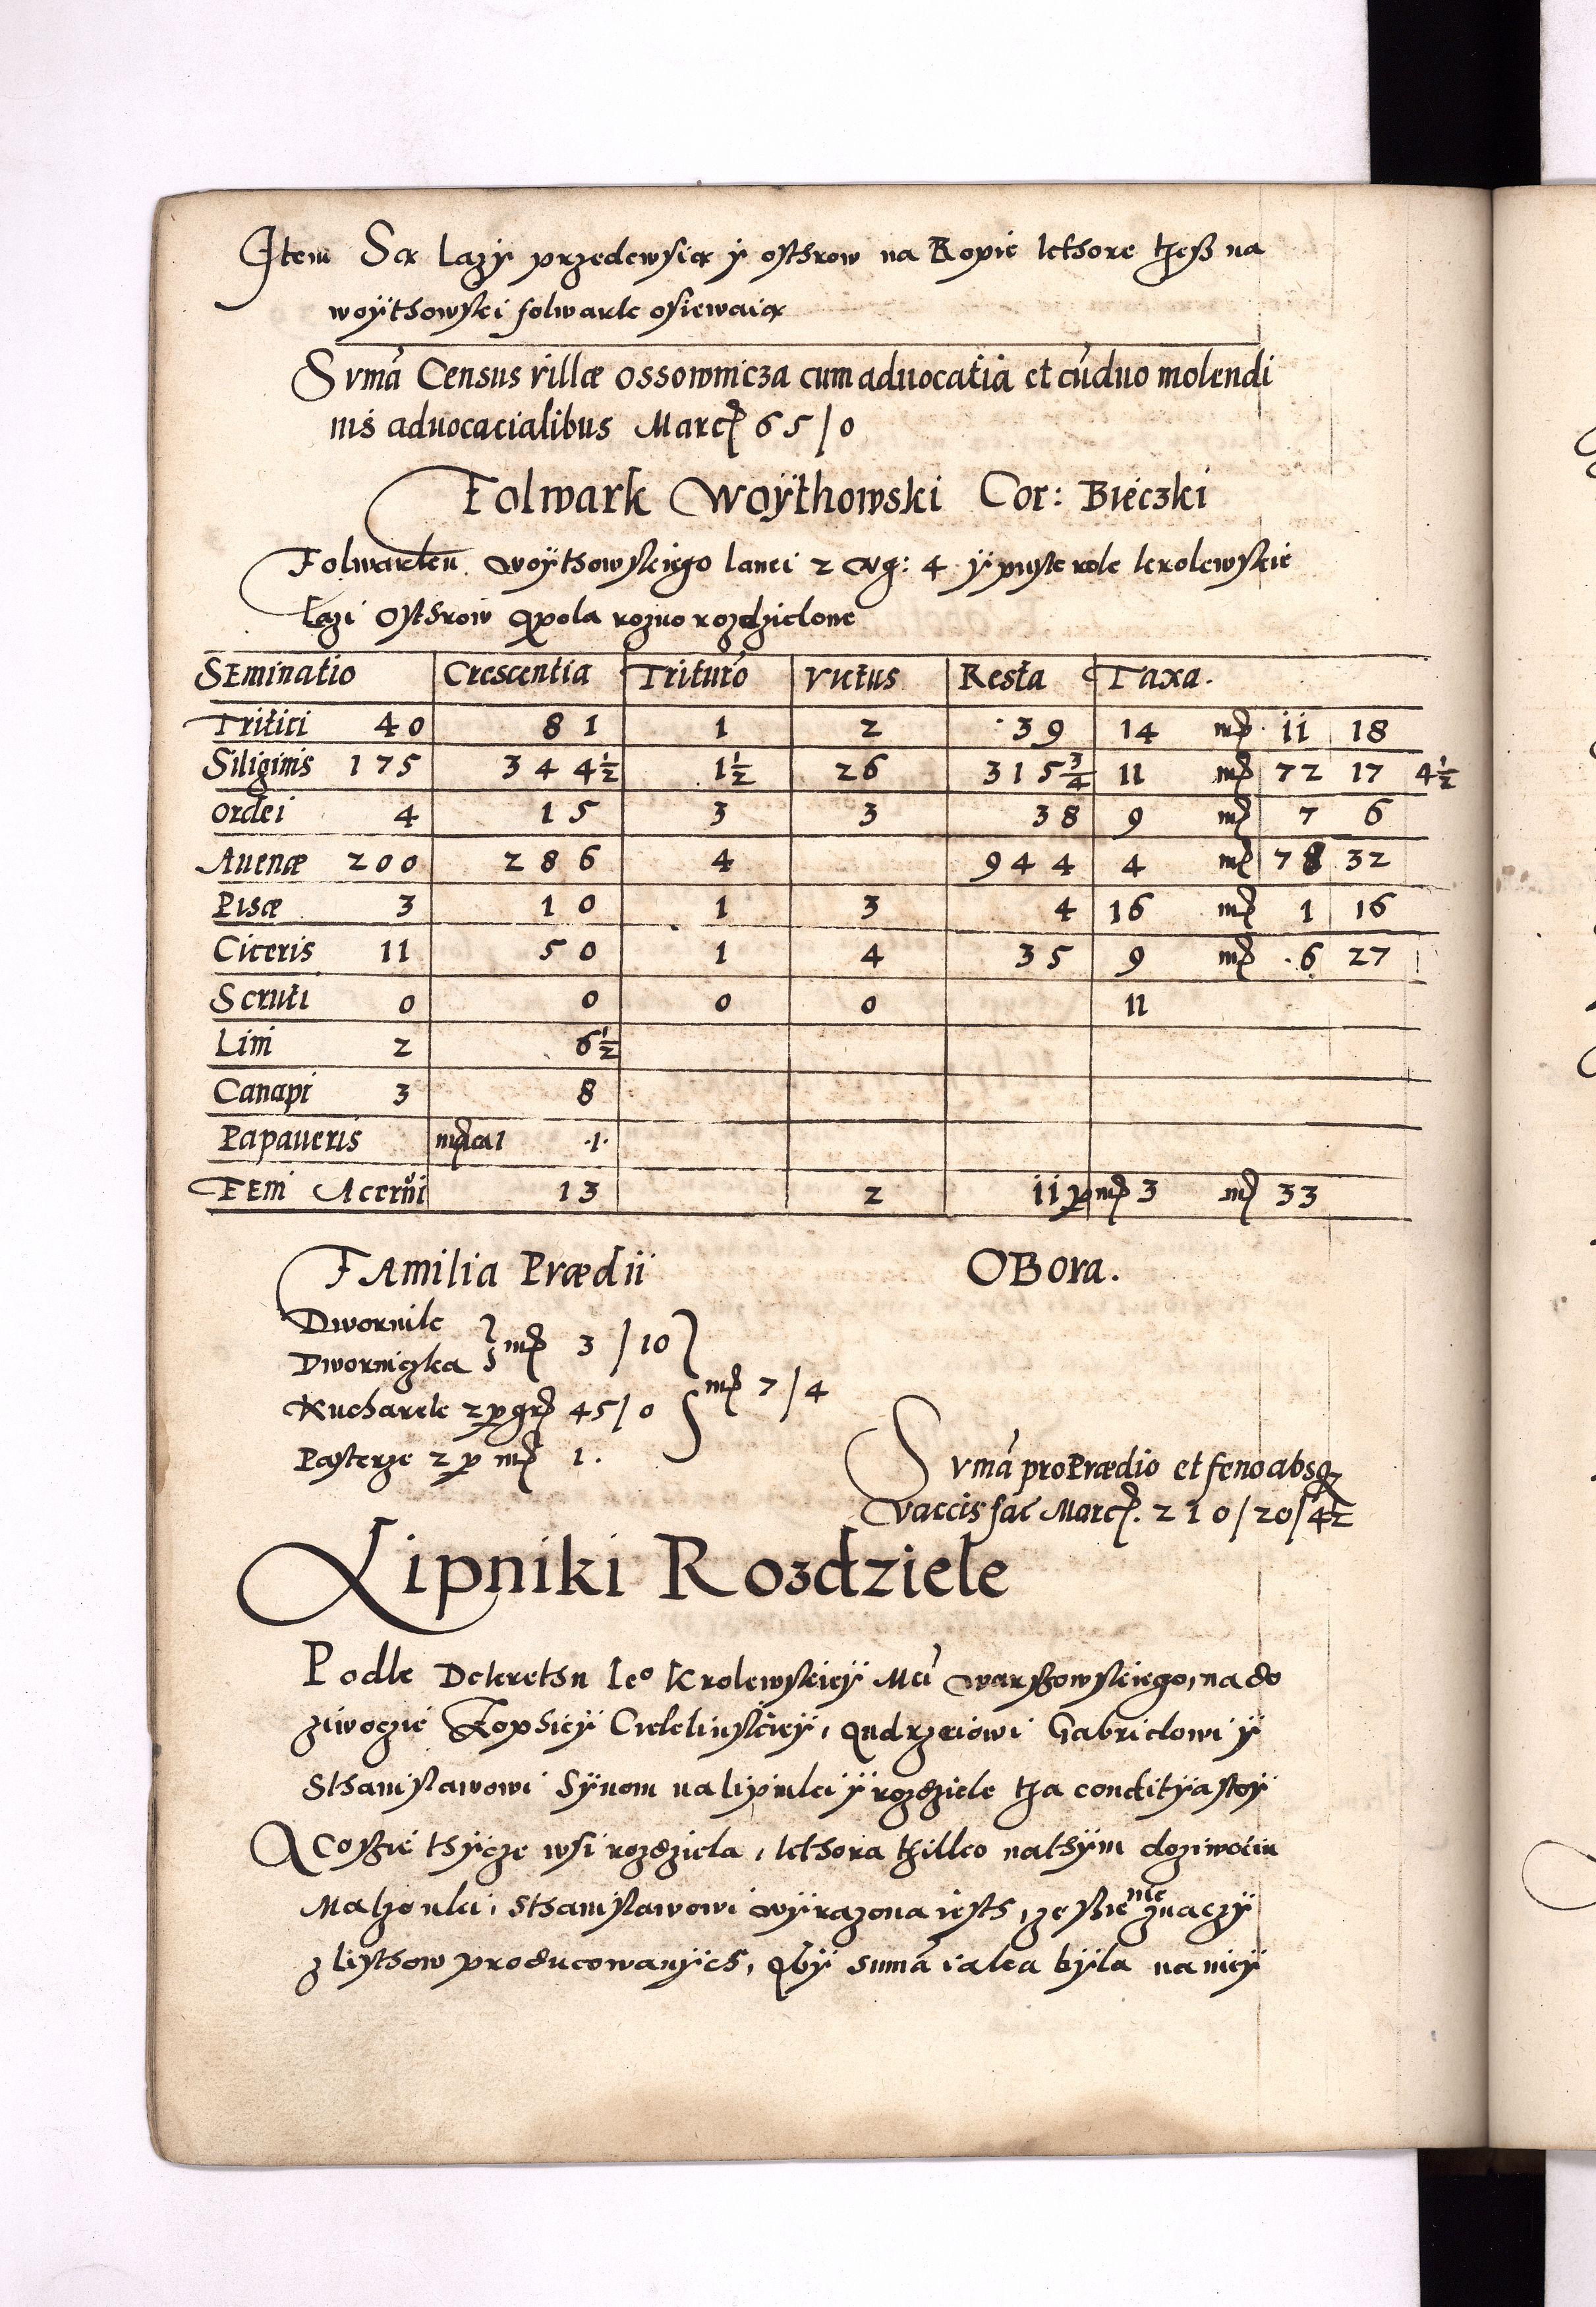 Item Są Lazy przedewsią y osthrow na Ropie kthore tżesz na
woÿthowski folwark osiewaią
Sumā Census villæ Ossownicza cum aduocatia et cū duo molendi
nis aduocacialibus Marc 65/0
Folwark Woÿthowski Cor: Bieczki
Folwarku woÿthowskiego lanei 2 Vg: 4 ÿ puste role krolewskie
Lazi Osthrow A pola rozno rozdzielone
Seminatio Crescentia Trituro Victus Resta Taxa.
Tritici 40 81 1 2 39 14 m 11 18
Siliginis 175 344½ 1½ 26 315¾ 11 m 72 17 4½
Ordei 4 15 3 3 38 9 m 7 6
Auenæ 200 286 4 944 4 m 78 32
Pisæ 3 10 1 3 4 16 m 1 16
Ciceris 11 50 1 4 35 9 m 6 27
Scruti 0 0 0 0 11
Lini 2 6½
Canapi 3 8
Papaueris 1
Feni Aceruī 13 2 11 p m 3 m 33
Familia Prædii OBora.
Dwornik
Dworniczka m 3/10
m 7/4
Kucharek 2 p gr 45/0
Pasterze 2 p m 1.
Sumā pro Prædio et feno absq
vaccis fac Marc. 210/20/4½
Lipniki Rozdziele
Podle Dekrethu Ieo Krolewskieÿ Mci warszowskiego, na do
ziwocie Zophieÿ Cieklinskieÿ, Andrzeiowi Gabrielowi ÿ
Sthanislawowi Sÿnom na lipniki ÿ rozdziele tża conditÿa stoÿ
A Coszie thÿcze wsi rozdziela, kthora tżilko nathÿm doziwociu
Malzonki, Sthanislawowi wÿrazona iesth, ze szie nie znaczÿ
z listhow producowanÿch, Abÿ sumā iaka bÿla na nieÿ